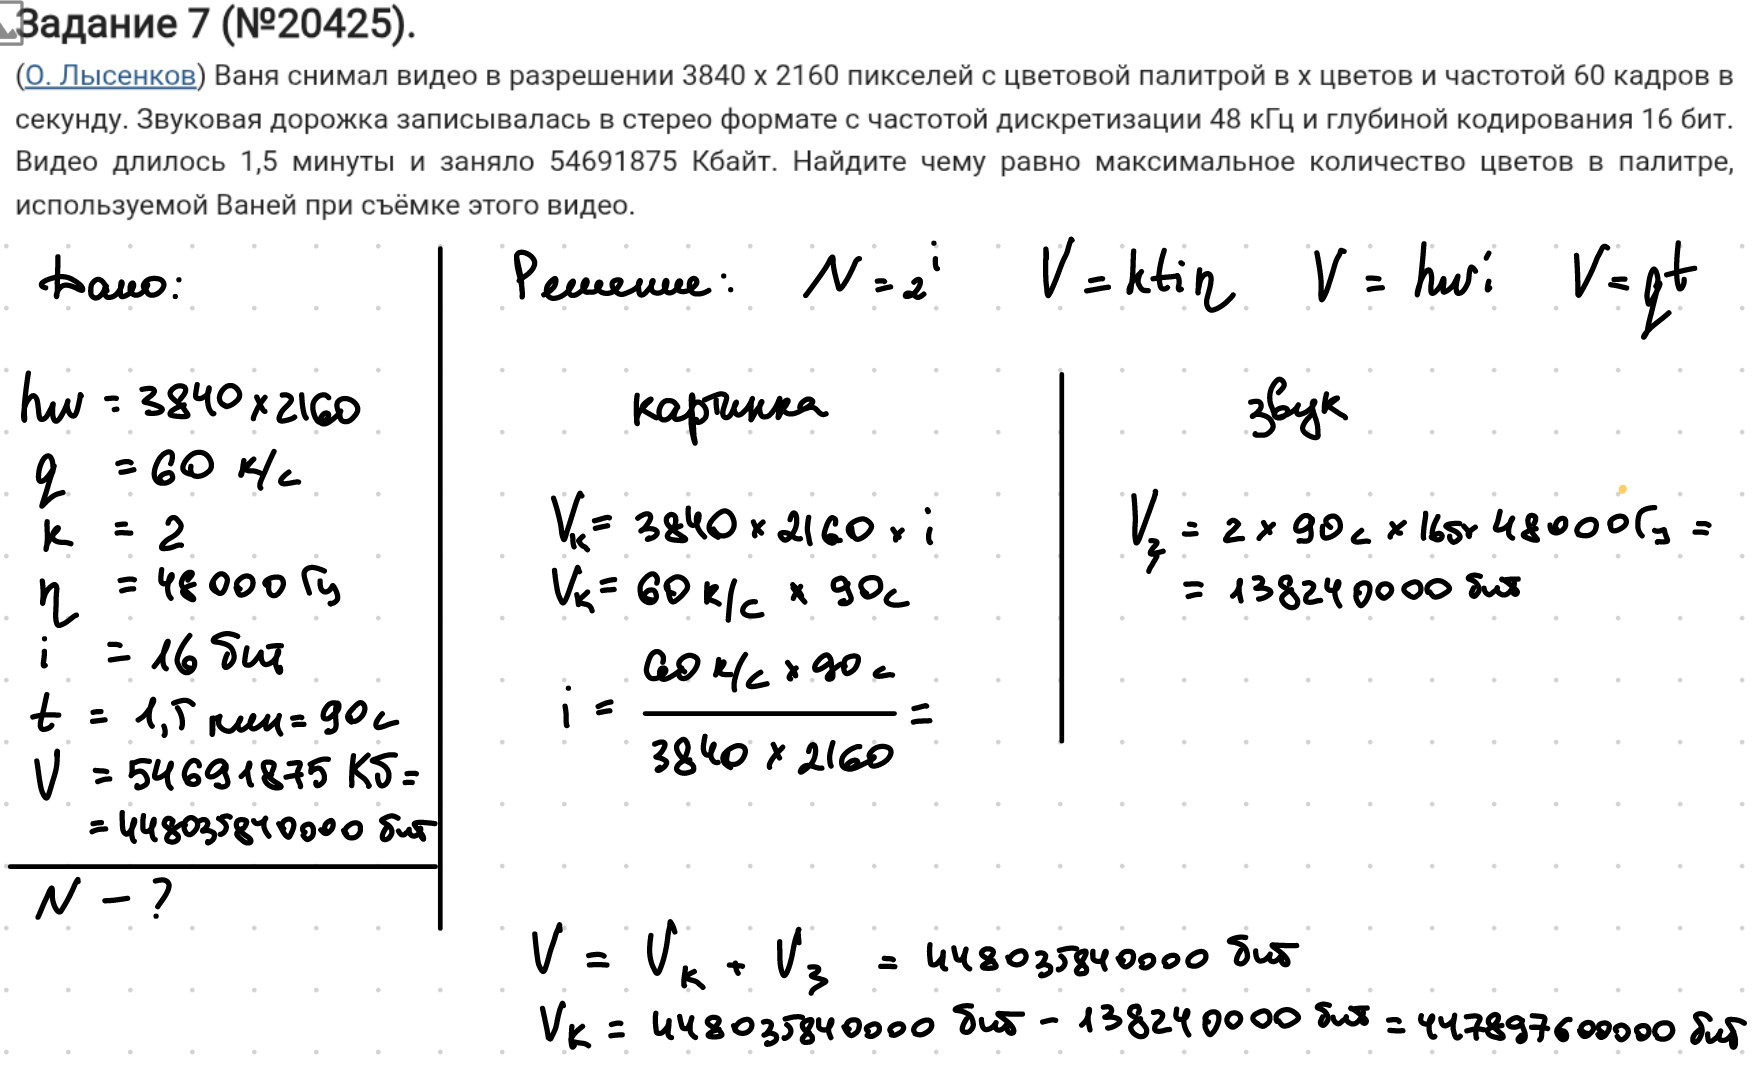 Задание 7 (№20425).
(О. Лысенков) Ваня снимал видео в разрешении 3840 x 2160 пикселей с цветовой палитрой в x цветов и частотой 60 кадров в
секунду. Звуковая дорожка записывалась в стерео формате с частотой дискретизации 48 кГц и глубиной кодирования 16 бит.
Видео длилось 1,5 минуты и заняло 54691875 Кбайт. Найдите чему равно максимальное количество цветов в палитре,
используемой Ваней при съёмке этого видео.
Дано:
hw = 3840 x 2160
q = 60 к/с
k = 2
η = 48 000 Гц
i = 16 бит
t = 1,5 мин = 90с
V = 54691875 Кб =
= 448035840000 бит
N - ?
Решение: N = 2^i V = ktiη V = hwi V = qt
картинка
Vк = 3840 x 2160 x i
Vк = 60 к/с x 90с
i = 60 к/с x 90 с / 3840 x 2160 =
звук
Vз = 2 x 90с x 16б x 48000Гц =
= 138240000 бит
V = Vк + Vз = 448035840000 бит
Vк = 448035840000 бит - 138240000 бит = 447897600000 бит